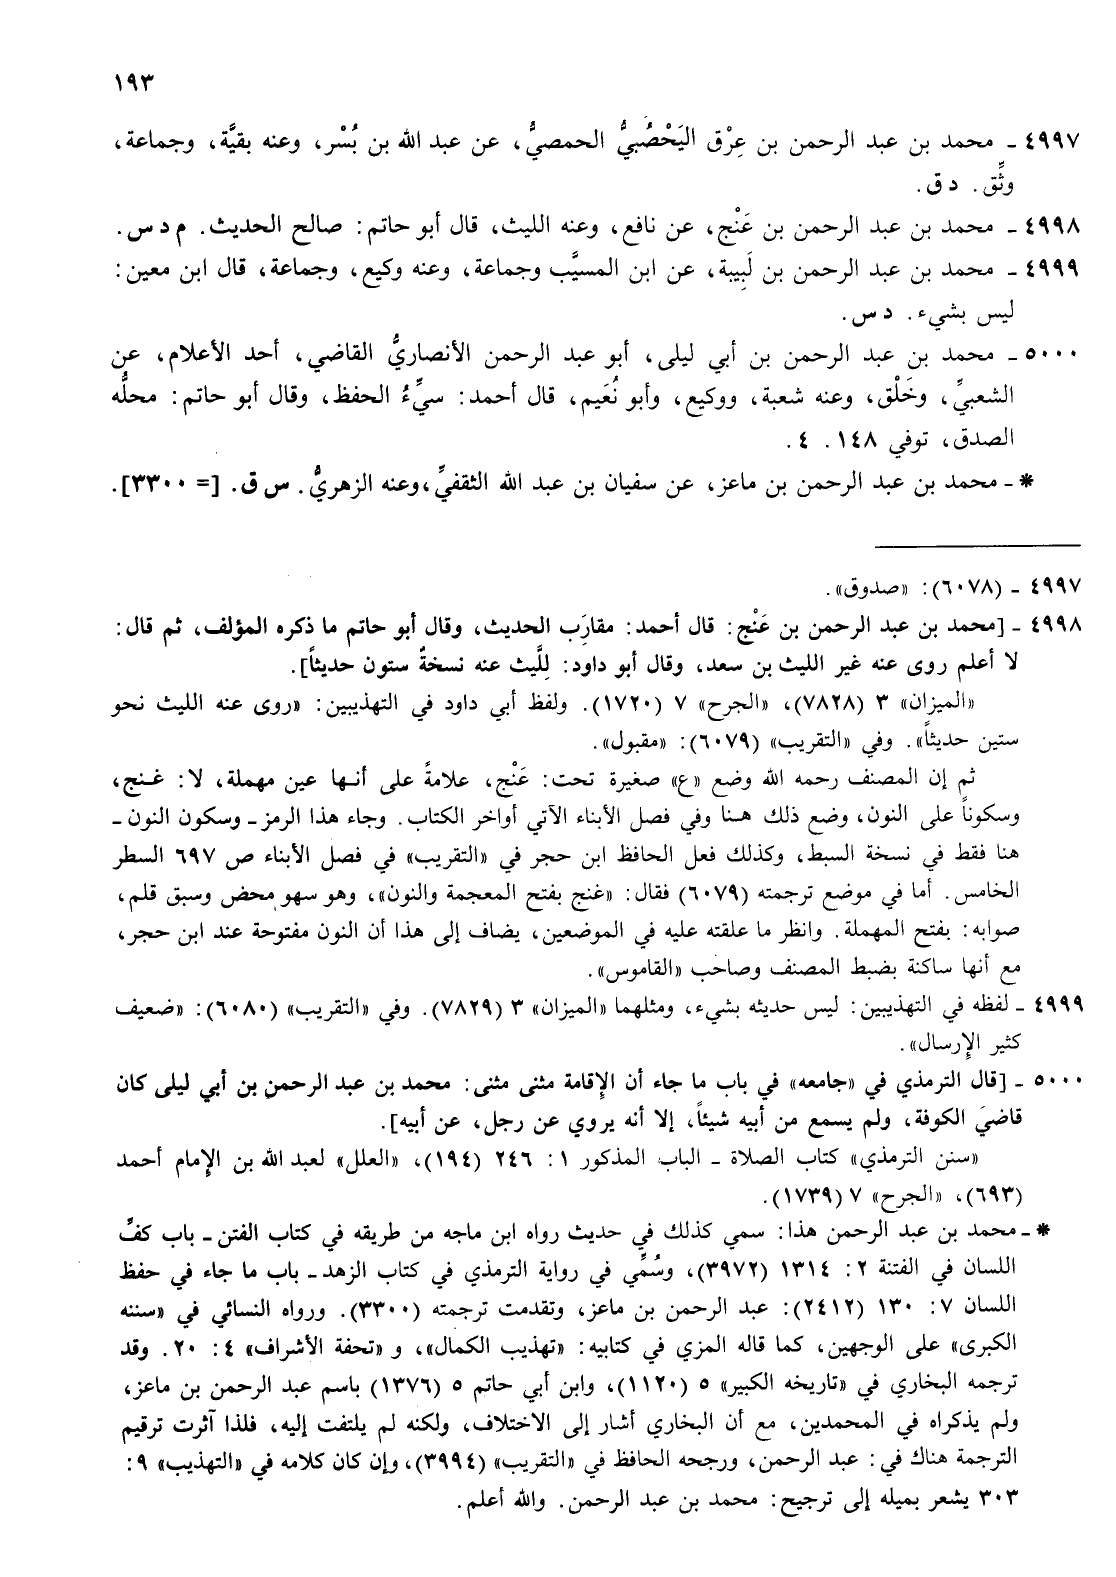 ١٩٣
٤٩٩٧ ـ محمد بن عبد الرحمن بن عِرْق اليَحْصُبيُّ الحمصيُّ، عن عبد الله بن بُسْر، وعنه بقيَّة، وجماعة،
وثِّق. د ق.
٤٩٩٨ ـ محمد بن عبد الرحمن بن عَنْج، عن نافع، وعنه الليث، قال أبو حاتم: صالح الحديث. م د س.
٤٩٩٩ ـ محمد بن عبد الرحمن بن لَبِيبة، عن ابن المسيَّب وجماعة، وعنه وكيع، وجماعة، قال ابن معين:
ليس بشيء. د س.
٥٠٠٠ ـ محمد بن عبد الرحمن بن أبي ليلى، أبو عبد الرحمن الأنصاريُّ القاضي، أحد الأعلام، عن
الشعبيِّ، وخَلْق، وعنه شعبة، ووكيع، وأبو نُعَيم، قال أحمد: سيِّءُ الحفظ، وقال أبو حاتم: محلُّه
الصدق، توفي ١٤٨. ٤.
* ـ محمد بن عبد الرحمن بن ماعز، عن سفيان بن عبد الله الثقفيِّ، وعنه الزهريُّ. س ق. [= ٣٣٠٠].
٤٩٩٧ ـ (٦٠٧٨): «صدوق».
٤٩٩٨ ـ [محمد بن عبد الرحمن بن عَنْج: قال أحمد: مقارَب الحديث، وقال أبو حاتم ما ذكره المؤلف، ثم قال:
لا أعلم روى عنه غير الليث بن سعد، وقال أبو داود: لِلَّيث عنه نسخةٌ ستون حديثاً].
«الميزان» ٣ (٧٨٢٨)، «الجرح» ٧ (١٧٢٠). ولفظ أبي داود في التهذيبين: «روى عنه الليث نحو
ستين حديثاً». وفي «التقريب» (٦٠٧٩): «مقبول».
ثم إن المصنف رحمه الله وضع «ع» صغيرة تحت: عَنْج، علامةً على أنها عين مهملة، لا: غنج،
وسكوناً على النون، وضع ذلك هنا وفي فصل الأبناء الآتي أواخر الكتاب. وجاء هذا الرمز ـ وسكون النون ـ
هنا فقط في نسخة السبط، وكذلك فعل الحافظ ابن حجر في «التقريب» في فصل الأبناء ص ٦٩٧ السطر
الخامس. أما في موضع ترجمته (٦٠٧٩) فقال: «غنج بفتح المعجمة والنون»، وهو سهو محض وسبق قلم،
صوابه: بفتح المهملة. وانظر ما علقته عليه في الموضعين، يضاف إلى هذا أن النون مفتوحة عند ابن حجر،
مع أنها ساكنة بضبط المصنف وصاحب «القاموس».
٤٩٩٩ ـ لفظه في التهذيبين: ليس حديثه بشيء، ومثلهما «الميزان» ٣ (٧٨٢٩). وفي «التقريب» (٦٠٨٠): «ضعيف
كثير الإرسال».
٥٠٠٠ ـ [قال الترمذي في «جامعه» في باب ما جاء أن الإقامة مثنى مثنى: محمد بن عبد الرحمن بن أبي ليلى كان
قاضيَ الكوفة، ولم يسمع من أبيه شيئاً، إلا أنه يروي عن رجل، عن أبيه].
«سنن الترمذي» كتاب الصلاة ـ الباب المذكور ١: ٢٤٦ (١٩٤)، «العلل» لعبد الله بن الإمام أحمد
(٦٩٣)، «الجرح» ٧ (١٧٣٩).
* ـ محمد بن عبد الرحمن هذا: سمي كذلك في حديث رواه ابن ماجه من طريقه في كتاب الفتن ـ باب كفِّ
اللسان في الفتنة ٢: ١٣١٤ (٣٩٧٢)، وسُمِّي في رواية الترمذي في كتاب الزهد ـ باب ما جاء في حفظ
اللسان ٧: ١٣٠ (٢٤١٢): عبد الرحمن بن ماعز، وتقدمت ترجمته (٣٣٠٠). ورواه النسائي في «سننه
الكبرى» على الوجهين، كما قاله المزي في كتابيه: «تهذيب الكمال»، و «تحفة الأشراف» ٤: ٢٠. وقد
ترجمه البخاري في «تاريخه الكبير» ٥ (١١٢٠)، وابن أبي حاتم ٥ (١٣٧٦) باسم عبد الرحمن بن ماعز،
ولم يذكراه في المحمدين، مع أن البخاري أشار إلى الاختلاف، ولكنه لم يلتفت إليه، فلذا آثرت ترقيم
الترجمة هناك في: عبد الرحمن، ورجحه الحافظ في «التقريب» (٣٩٩٤)، وإن كان كلامه في «التهذيب» ٩:
٣٠٣ يشعر بميله إلى ترجيح: محمد بن عبد الرحمن. والله أعلم.